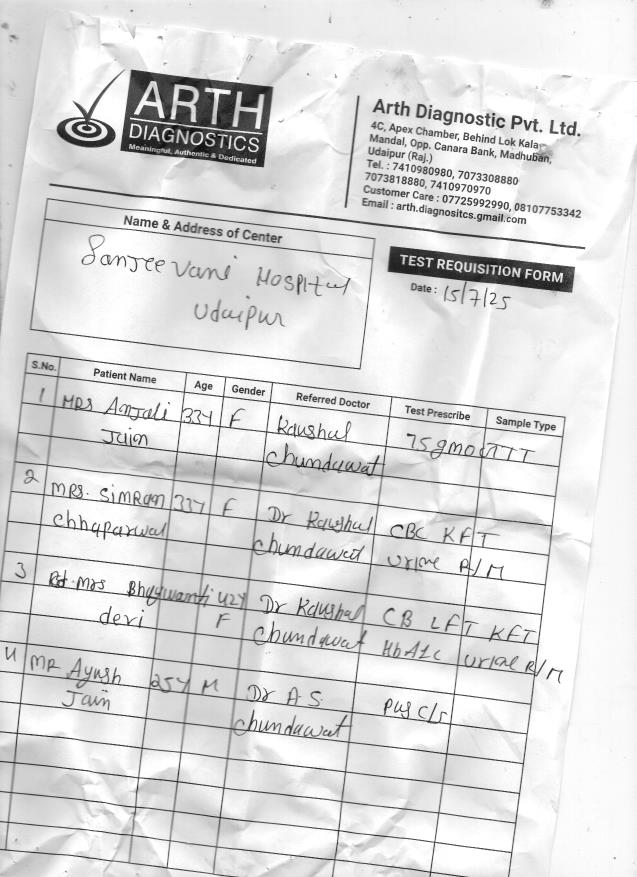 ARTH
DIAGNOSTICS
Meaningful, Authentic & Dedicated
Arth Diagnostic Pvt. Ltd.
4C, Apex Chamber, Behind Lok Kala
Mandal, Opp. Canara Bank, Madhuban,
Udaipur (Raj.)
Tel. : 7410980980, 7073308880
7073818880, 7410970970
Customer Care : 07725992990, 08107753342
Email : arth.diagnositcs.gmail.com
Name & Address of Center
Sanjeevani Hospital
Udaipur
TEST REQUISITION FORM
Date : 15/7/25
S.No. Patient Name Age Gender Referred Doctor Test Prescribe Sample Type
1 MRS Anjali 33Y F Kaushal 75gm
Jain Chundawat
2 MRS. SIMRAN 33Y F Dr Kaushal CBC KFT
Chhaparwal Chundawat Urine R/M
3 Mrs Bhagwanti 42Y Dr Kaushal CB LFT KFT
devi F Chundawat HbA1c Urine R/M
4 MR Ayush 25Y M Dr A S. Pus C/S
Jain Chundawat